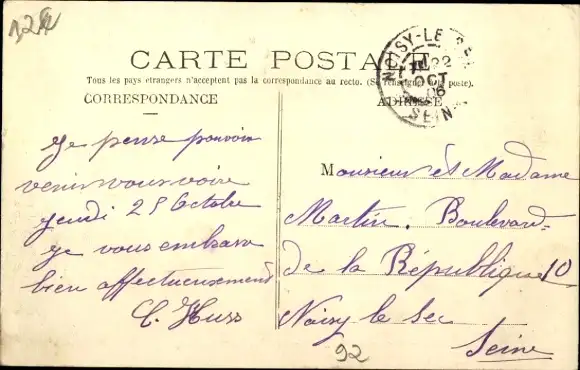 124
NOISY-LE-SEC
22
OCT
06
SEINE
CARTE POSTALE
Tous les pays étrangers n'acceptent pas la correspondance au recto. (Se renseigner à la poste).
CORRESPONDANCE
ADRESSE
Je pense pouvoir
venir vous voir
jeudi 25 Octobre
je vous embrasse
bien affectueusement
C. Huss
Monsieur et Madame
Martin. Boulevard
de la République 10
Noisy le Sec
Seine
92